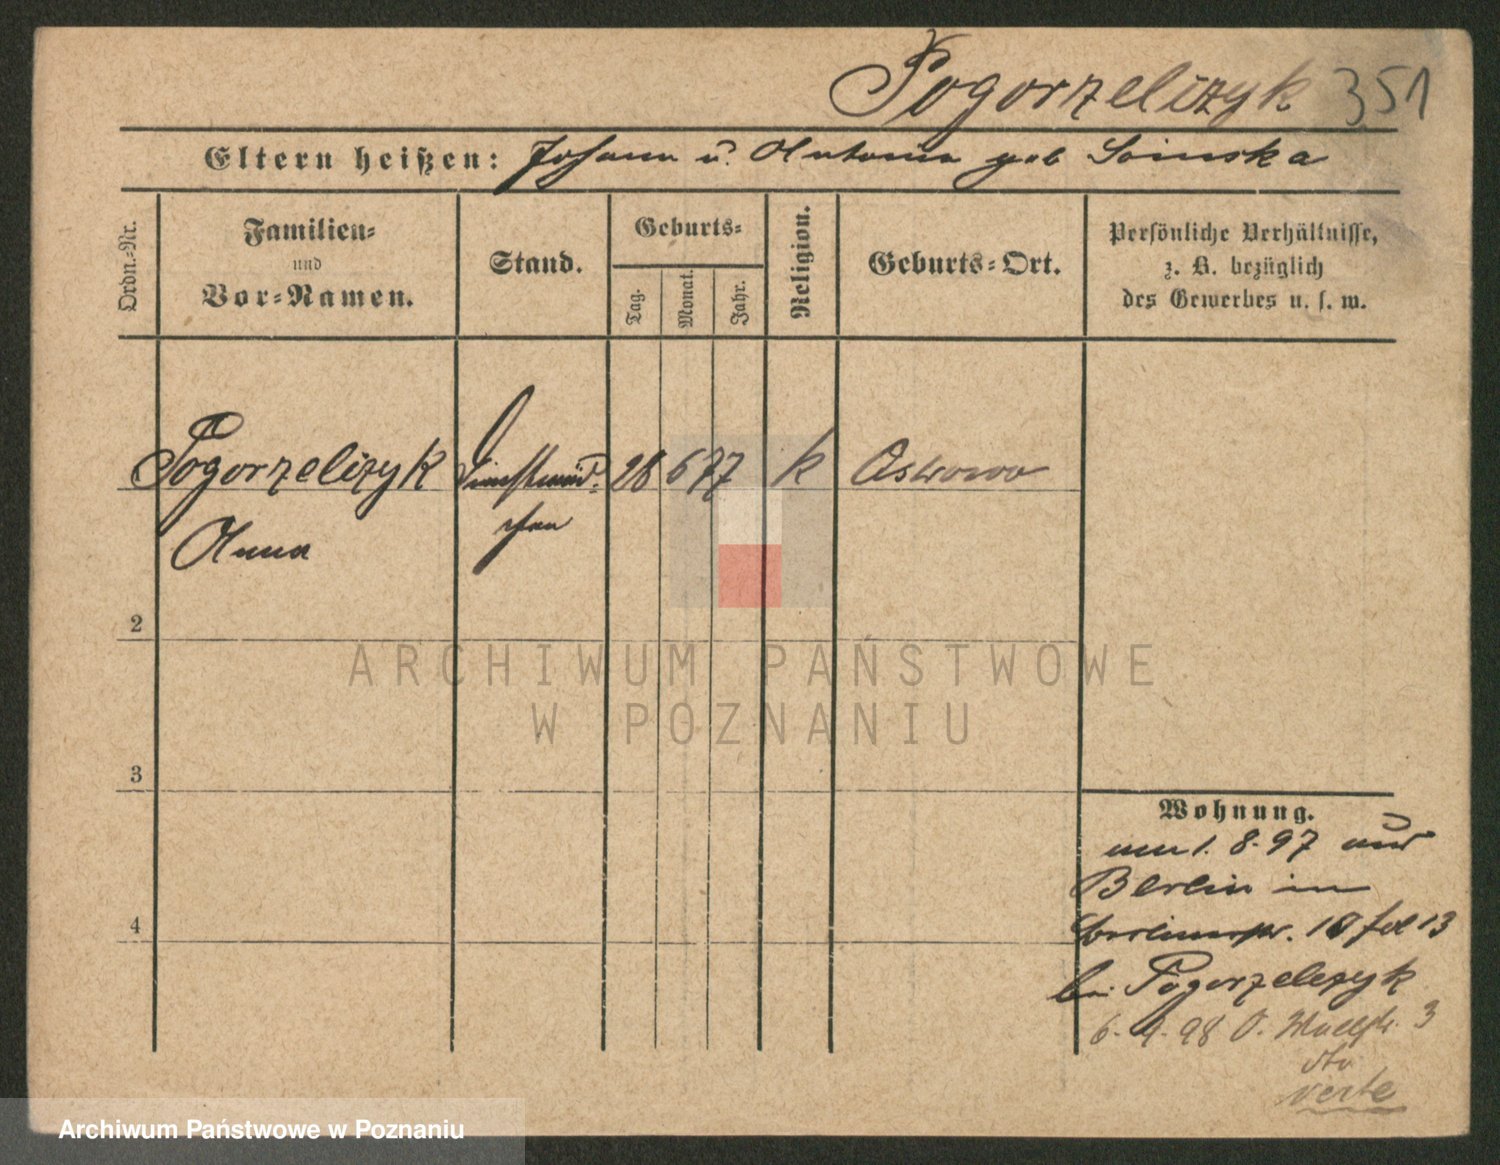 Pogorzelizyk 351
Eltern heißen: Johann u. Antonina geb Soinska
Ordn.-Nr.
Familien-
und
Vor-Namen.
Stand.
Geburts-
Tag.
Monat.
Jahr.
Religion.
Geburts-Ort.
Persönliche Verhältnisse,
z. B. bezüglich
des Gewerbes u. s. w.
Pogorzelizyk Dienstmäd- 28 6 77 k
chen
Anna
2
3
4
Wohnung.
1. 8. 97 aus
Berlin in
18 13
bei Pogorzelezyk
6. 4. 98 O. Wallstr. 3
dto
verte
ARCHIWUM PAŃSTWOWE
W POZNANIU
Archiwum Państwowe w Poznaniu